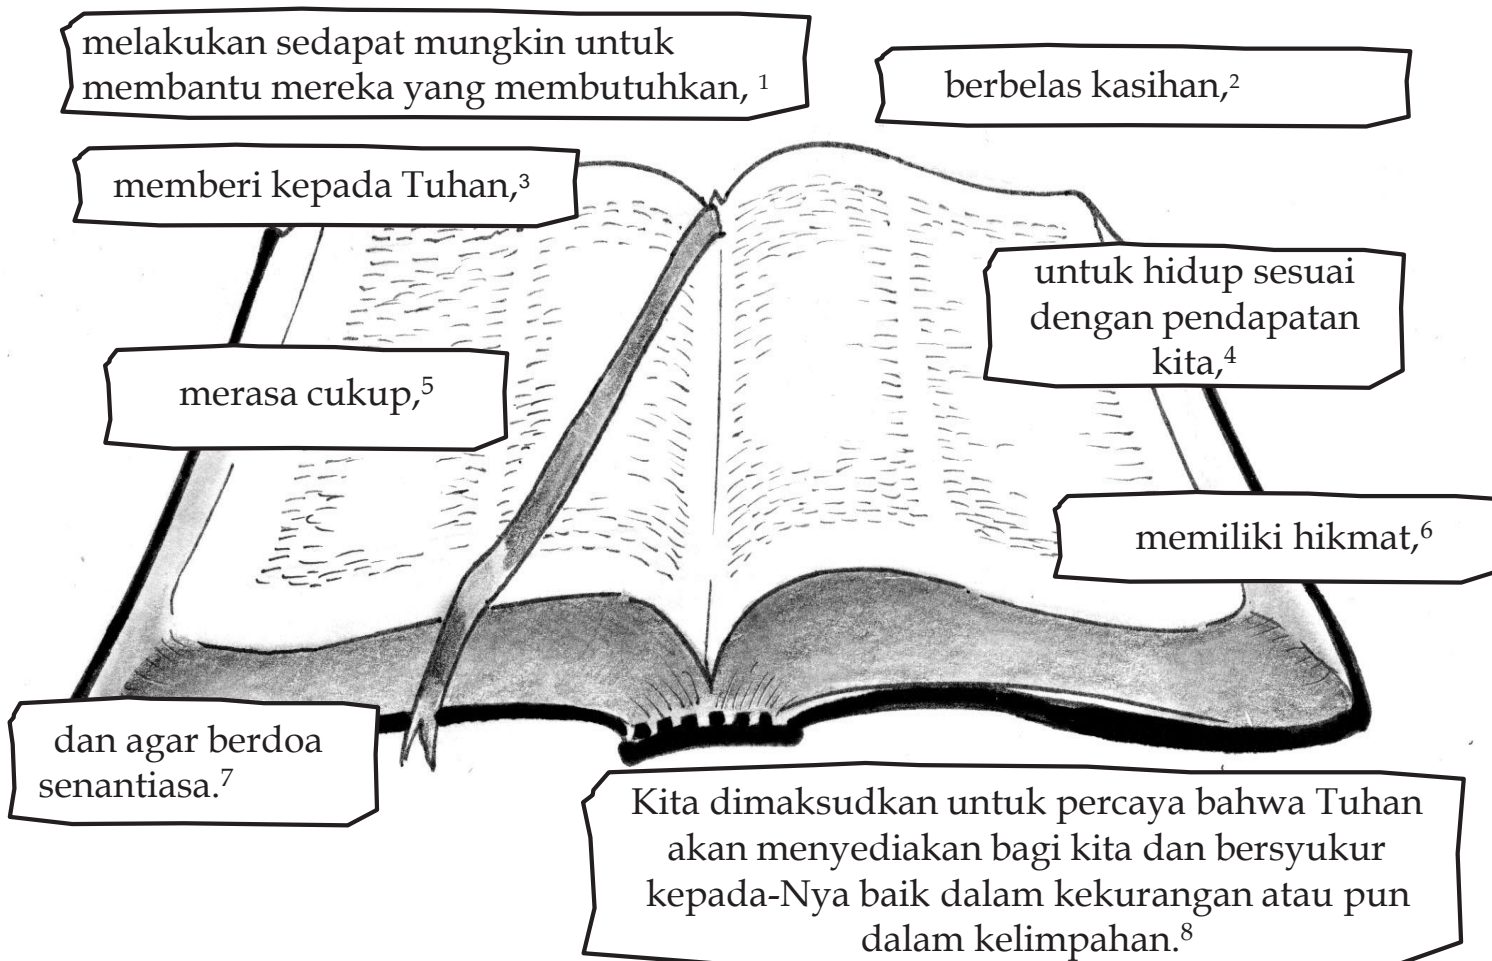 melakukan sedapat mungkin untuk
membantu mereka yang membutuhkan, ¹
berbelas kasihan,²
memberi kepada Tuhan,³
untuk hidup sesuai
dengan pendapatan
kita,⁴
merasa cukup,⁵
memiliki hikmat,⁶
dan agar berdoa
senantiasa.⁷
Kita dimaksudkan untuk percaya bahwa Tuhan
akan menyediakan bagi kita dan bersyukur
kepada-Nya baik dalam kekurangan atau pun
dalam kelimpahan.⁸